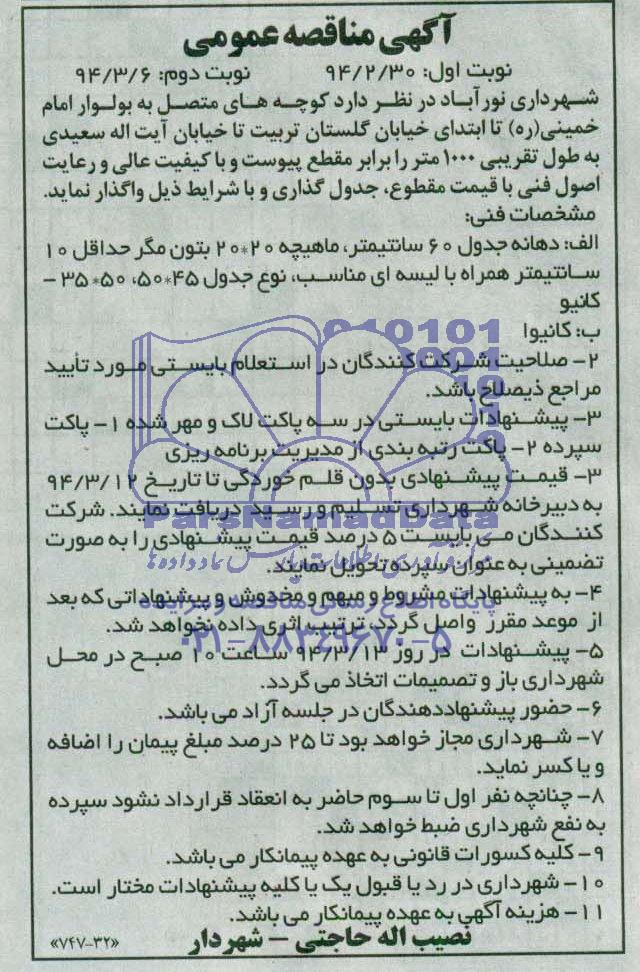 آگهی مناقصه عمومی
نوبت اول: ۹۴/۲/۳۰ نوبت دوم: ۹۴/۳/۶
شهرداری نورآباد در نظر دارد کوچه های متصل به بولوار امام
خمینی(ره) تا ابتدای خیابان گلستان تربیت تا خیابان آیت اله سعیدی
به طول تقریبی ۱۰۰۰ متر را برابر مقطع پیوست و با کیفیت عالی و رعایت
اصول فنی با قیمت مقطوع، جدول گذاری و با شرایط ذیل واگذار نماید.
مشخصات فنی:
الف: دهانه جدول ۶۰ سانتیمتر، ماهیچه ۲۰*۲۰ بتون مگر حداقل ۱۰
سانتیمتر همراه با لیسه ای مناسب، نوع جدول ۴۵*۵۰، ۵۰*۳۵ –
کانیو
ب: کانیوا
۲- صلاحیت شرکت کنندگان در استعلام بایستی مورد تأیید
مراجع ذیصلاح باشد.
۳- پیشنهادات بایستی در سه پاکت لاک و مهر شده ۱- پاکت
سپرده ۲- پاکت رتبه بندی از مدیریت برنامه ریزی
۳- قیمت پیشنهادی بدون قلم خوردگی تا تاریخ ۹۴/۳/۱۲
به دبیرخانه شهرداری تسلیم و رسید دریافت نمایند. شرکت
کنندگان می بایست ۵ درصد قیمت پیشنهادی را به صورت
تضمینی به عنوان سپرده تحویل نمایند.
۴- به پیشنهادات مشروط و مبهم و مخدوش و پیشنهاداتی که بعد
از موعد مقرر واصل گردد، ترتیب اثری داده نخواهد شد.
۵- پیشنهادات در روز ۹۴/۳/۱۳ ساعت ۱۰ صبح در محل
شهرداری باز و تصمیمات اتخاذ می گردد.
۶- حضور پیشنهاددهندگان در جلسه آزاد می باشد.
۷- شهرداری مجاز خواهد بود تا ۲۵ درصد مبلغ پیمان را اضافه
و یا کسر نماید.
۸- چنانچه نفر اول تا سوم حاضر به انعقاد قرارداد نشود سپرده
به نفع شهرداری ضبط خواهد شد.
۹- کلیه کسورات قانونی به عهده پیمانکار می باشد.
۱۰- شهرداری در رد یا قبول یک یا کلیه پیشنهادات مختار است.
۱۱- هزینه آگهی به عهده پیمانکار می باشد.
نصیب اله حاجتی – شهردار
«۷۴۷-۳۲»
ParsNamadData
پایگاه اطلاع رسانی مناقصه و مزایده
۰۲۱-۸۸۳۴۹۶۷۰-۵